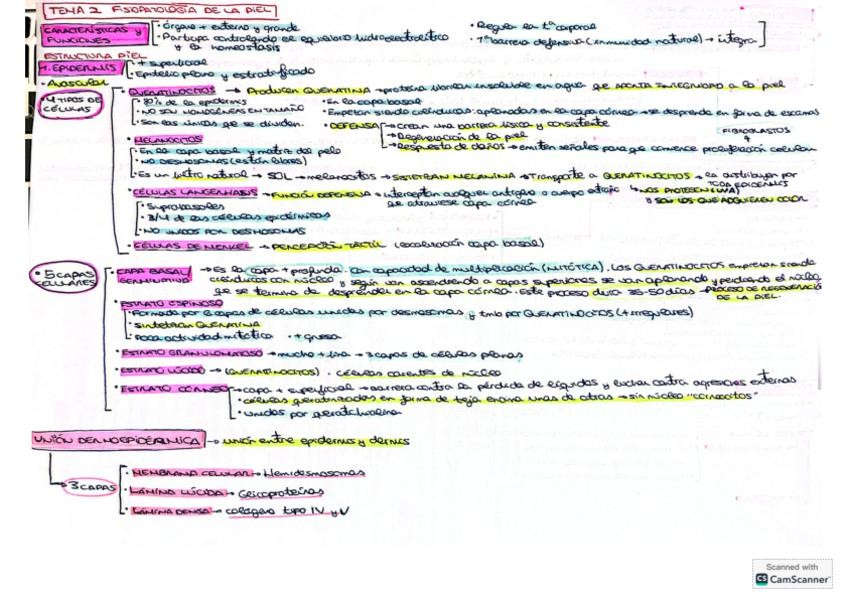 TEMA 2 FISIOPATOLOGÍA DE LA PIEL
CARACTERÍSTICAS Y FUNCIONES
· Órgano + externo y grande
· Participa controlando el equilibrio hidroelectrolítico y la homeostasis
· Regular la tª corporal
· 1ª barrera defensiva (inmunidad natural) → íntegra
ESTRUCTURA PIEL
1. EPIDERMIS
· + superficial
· Epitelio plano y estratificado
· Avascular
· 4 TIPOS DE CÉLULAS
· QUERATINOCITOS → Producen QUERATINA → proteína insoluble en agua que aporta integridad a la piel
· 80% de la epidermis
· NO SON HOMOGÉNEAS EN TAMAÑO
· Son las únicas que se dividen.
· En la capa basal
· Empiezan siendo cilíndricas: aplanadas en la capa córnea → se desprende en forma de escamas
· DEFENSA → Crean una barrera física y consistente
→ Regeneración de la piel
→ Respuesta de daños → emiten señales para que comience proliferación celular
FIBROBLASTOS
· MELANOCITOS
· En la capa basal y matriz del pelo
· NO DESMOSOMAS (están libres)
· Es un filtro natural → SOL → melanocitos → SINTETIZAN MELANINA → Transporte a QUERATINOCITOS → la distribuyen por TODA EPIDERMIS
→ NOS PROTEGEN (UVA)
Y SON LOS QUE ADQUIEREN COLOR
· CÉLULAS LANGERHANS → FUNCIÓN DEFENSIVA → interceptan cualquier antígeno o cuerpo extraño que atraviese capa córnea
· Suprabasales
· 3/4 de las células epidérmicas
· NO UNIDOS POR DESMOSOMAS
· CÉLULAS DE MERKEL → PERCEPCIÓN TÁCTIL (localización capa basal)
· 5 CAPAS CELULARES
· CAPA BASAL/ GERMINATIVA → Es la capa + profunda. Con capacidad de multiplicación (MITÓTICA). Los QUERATINOCITOS empiezan siendo cilíndricos con núcleo y según van ascendiendo a capas superiores se van aplanando y perdiendo el núcleo
que se termina de desprender en la capa córnea. Este proceso dura 35-50 días → PROCESO DE REGENERACIÓN DE LA PIEL.
· ESTRATO ESPINOSO
· Formada por capas de células unidas por desmosomas y tmb por QUERATINOCITOS (+ irregulares)
· Sintetizan QUERATINA
· Poca actividad mitótica · + gruesa
· ESTRATO GRANULOMATOSO → mucho + fina → 3 capas de células planas
· ESTRATO LÚCIDO → (QUERATINOCITOS). Células carentes de núcleo
· ESTRATO CÓRNEO → capa + superficial → barrera contra la pérdida de líquidos y luchar contra agresiones externas
· células queratinizadas en forma de teja encima unas de otras → sin núcleo "corneocitos"
· unidas por
UNIÓN DERMOEPIDÉRMICA → unión entre epidermis y dermis
→ 3 CAPAS
· MEMBRANA CELULAR → Hemidesmosomas
· LÁMINA LÚCIDA → Glicoproteínas
· LÁMINA DENSA → colágeno tipo IV y V
Scanned with
CS CamScanner